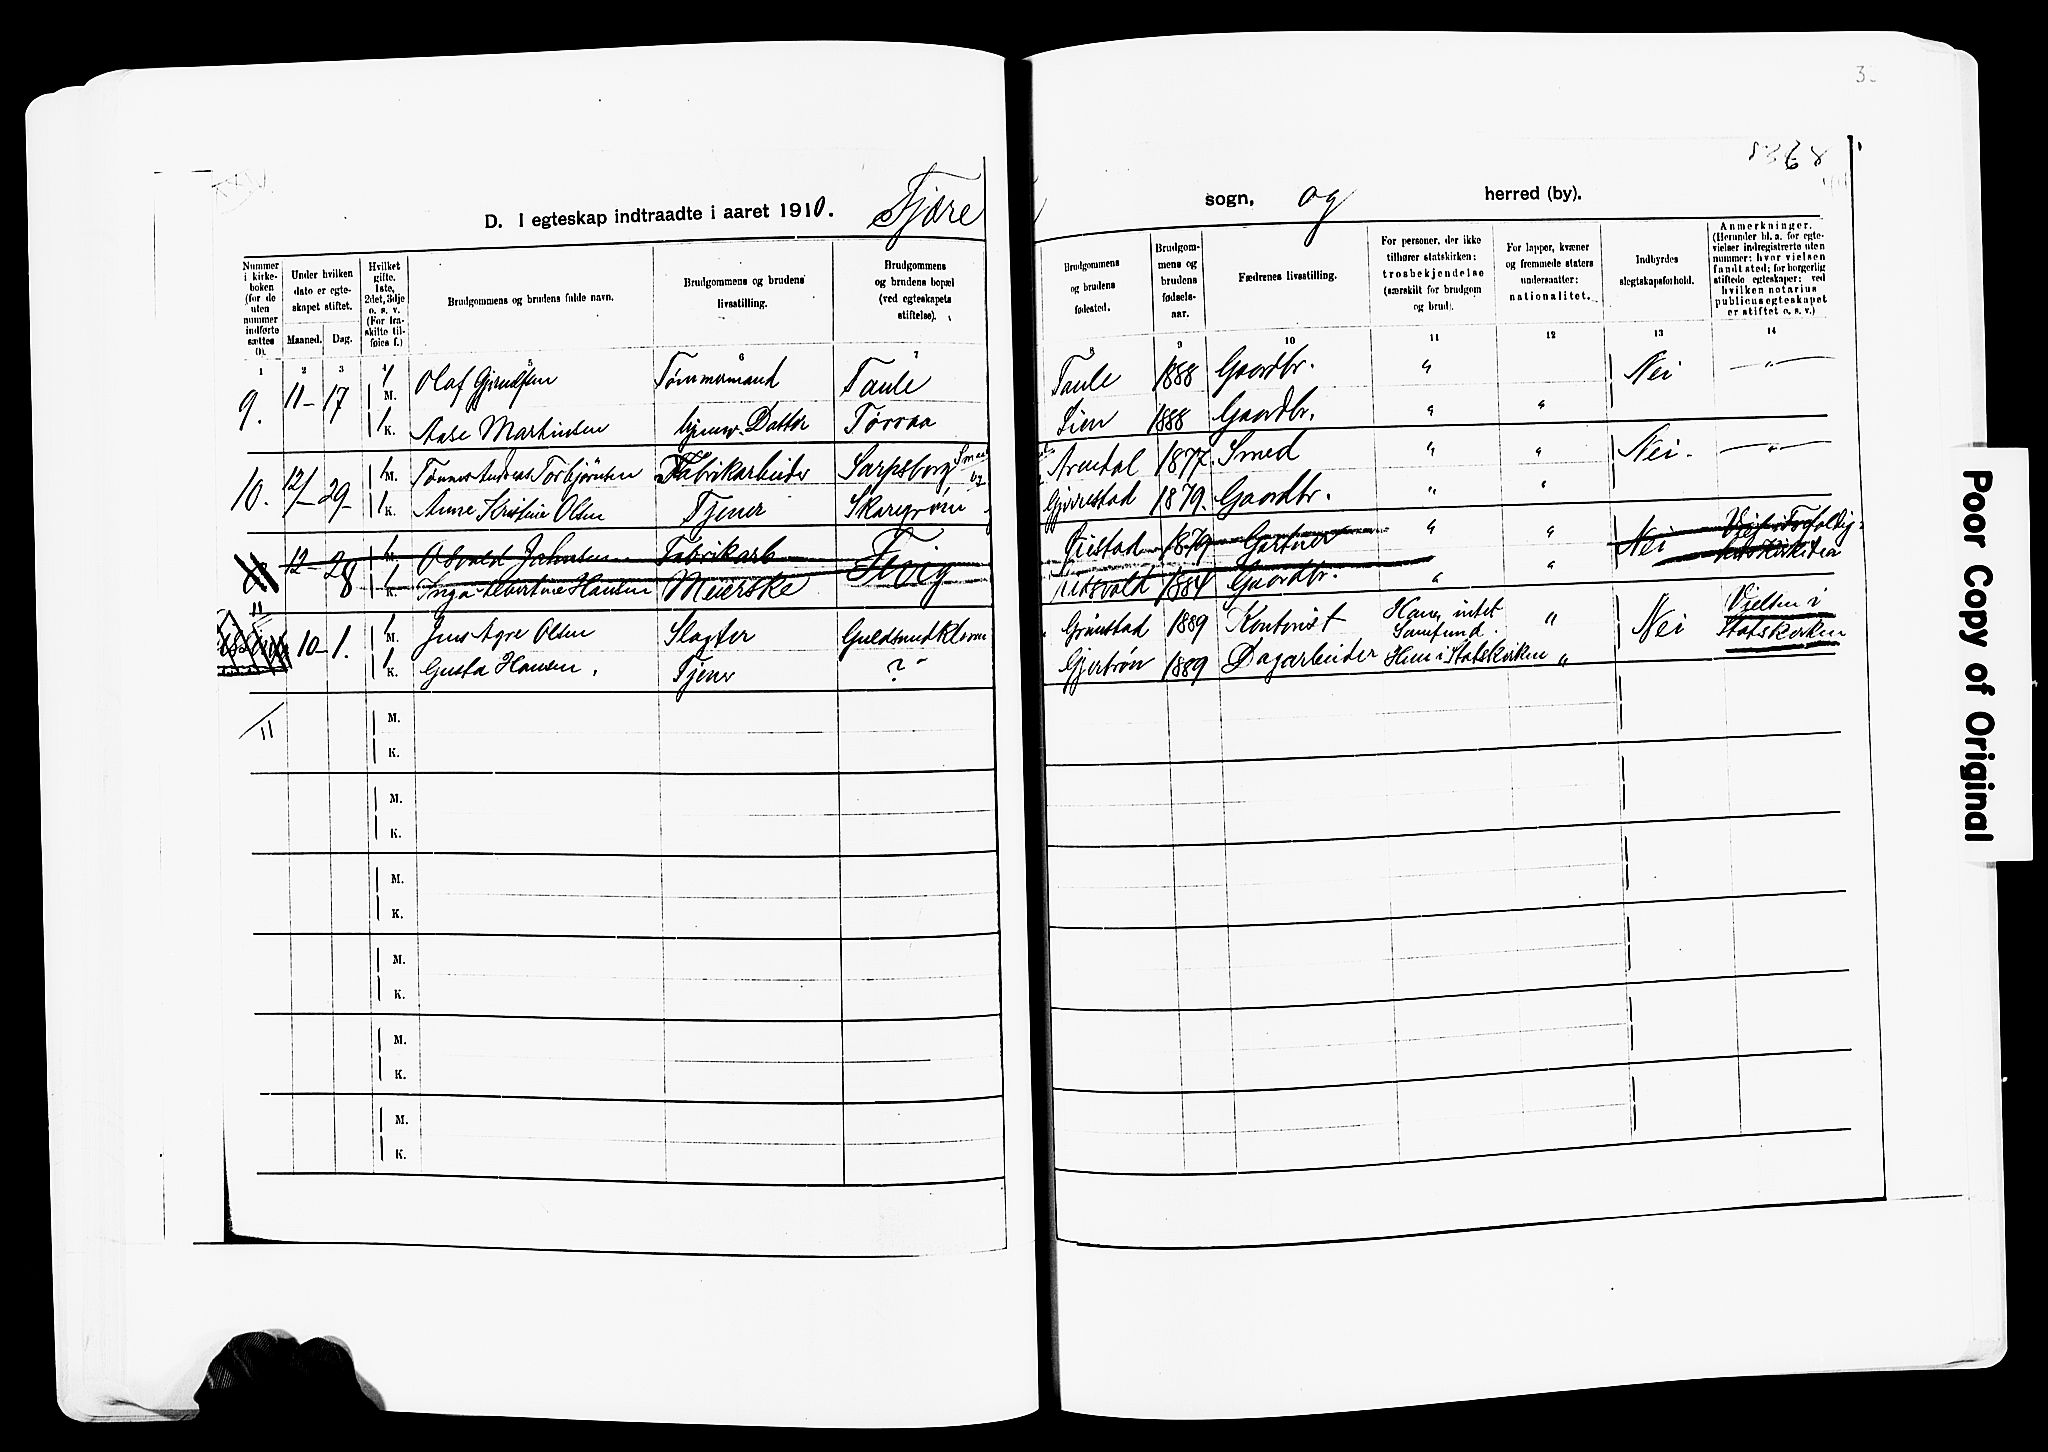 D. I egteskap indtraadte i aaret 1910. Fjære sogn, og herred (by).
Nummer i kirkeboken (for de uten nummer indførte sættes 0).
Under hvilken dato er egteskapet stiftet.
Maaned. Dag.
Hvilket gifte. 1ste, 2det, 3dje o. s. v. (For fraskilte tilføies f.)
Brudgommens og brudens fulde navn.
Brudgommens og brudens livsstilling.
Brudgommens og brudens bopæl (ved egteskapets stiftelse).
Brudgommens og brudens fødested.
Brudgommens og brudens fødselsaar.
Fædrenes livsstilling.
For personer, der ikke tilhører statskirken: trosbekjendelse (særskilt for brudgom og brud).
For lapper, kvæner og fremmede staters undersaatter: nationalitet.
Indbyrdes slegtskapsforhold.
Anmerkninger. (Herunder bl. a. for egtevielser indregistrerte uten nummer: hvor vielsen fandt sted; for borgerlig stiftede egteskaper: ved hvilken notarius publicus egteskapet er stiftet o. s. v.)
1 2 3 4 5 6 7 8 9 10 11 12 13 14
9. 11-17 1 M. Olaf Tømmermand Taule Taule 1888 Gaardbr. " Nei "
1 K. Aase Martinsen Datter Tørraa Lien 1888 Gaardbr. " "
10. 12-29 1 M. Tønnes Andreas Torbjørnsen Fabrikarbeider Sarpsborg Arendal 1877 Smed " " Nei. "
1 K. Anne Kristine Olsen Tjener Skaregrøm Gjerrestad 1879. Gaardbr. " "
12-28 1 M. Osvald Johnsen Fabrikarb Fevig 1879 Gartner " " Nei
1 K. Inga Albertine Hansen Meierske 1884 Gaardbr. " "
11 10-1. 1 M. Jens Agre Olsen Slagter Grimstad 1889 Kontorist Han, intet Samfund. " Nei Vielsen i Statskirken
1 K. Gusta Hansen. Tjener ? " Gjertrøn 1889 Dagarbeider Hun i Statskirken "
11 M.
K.
M.
K.
M.
K.
M.
K.
M.
K.
M.
K.
Poor Copy of Original